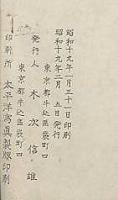 昭和十九年一月三十一日印刷
昭和十九年二月五日発行
東京都牛込区袋町四
発行人 木次信雄
東京都牛込区袋町四
印刷所 太平洋写真製版印刷